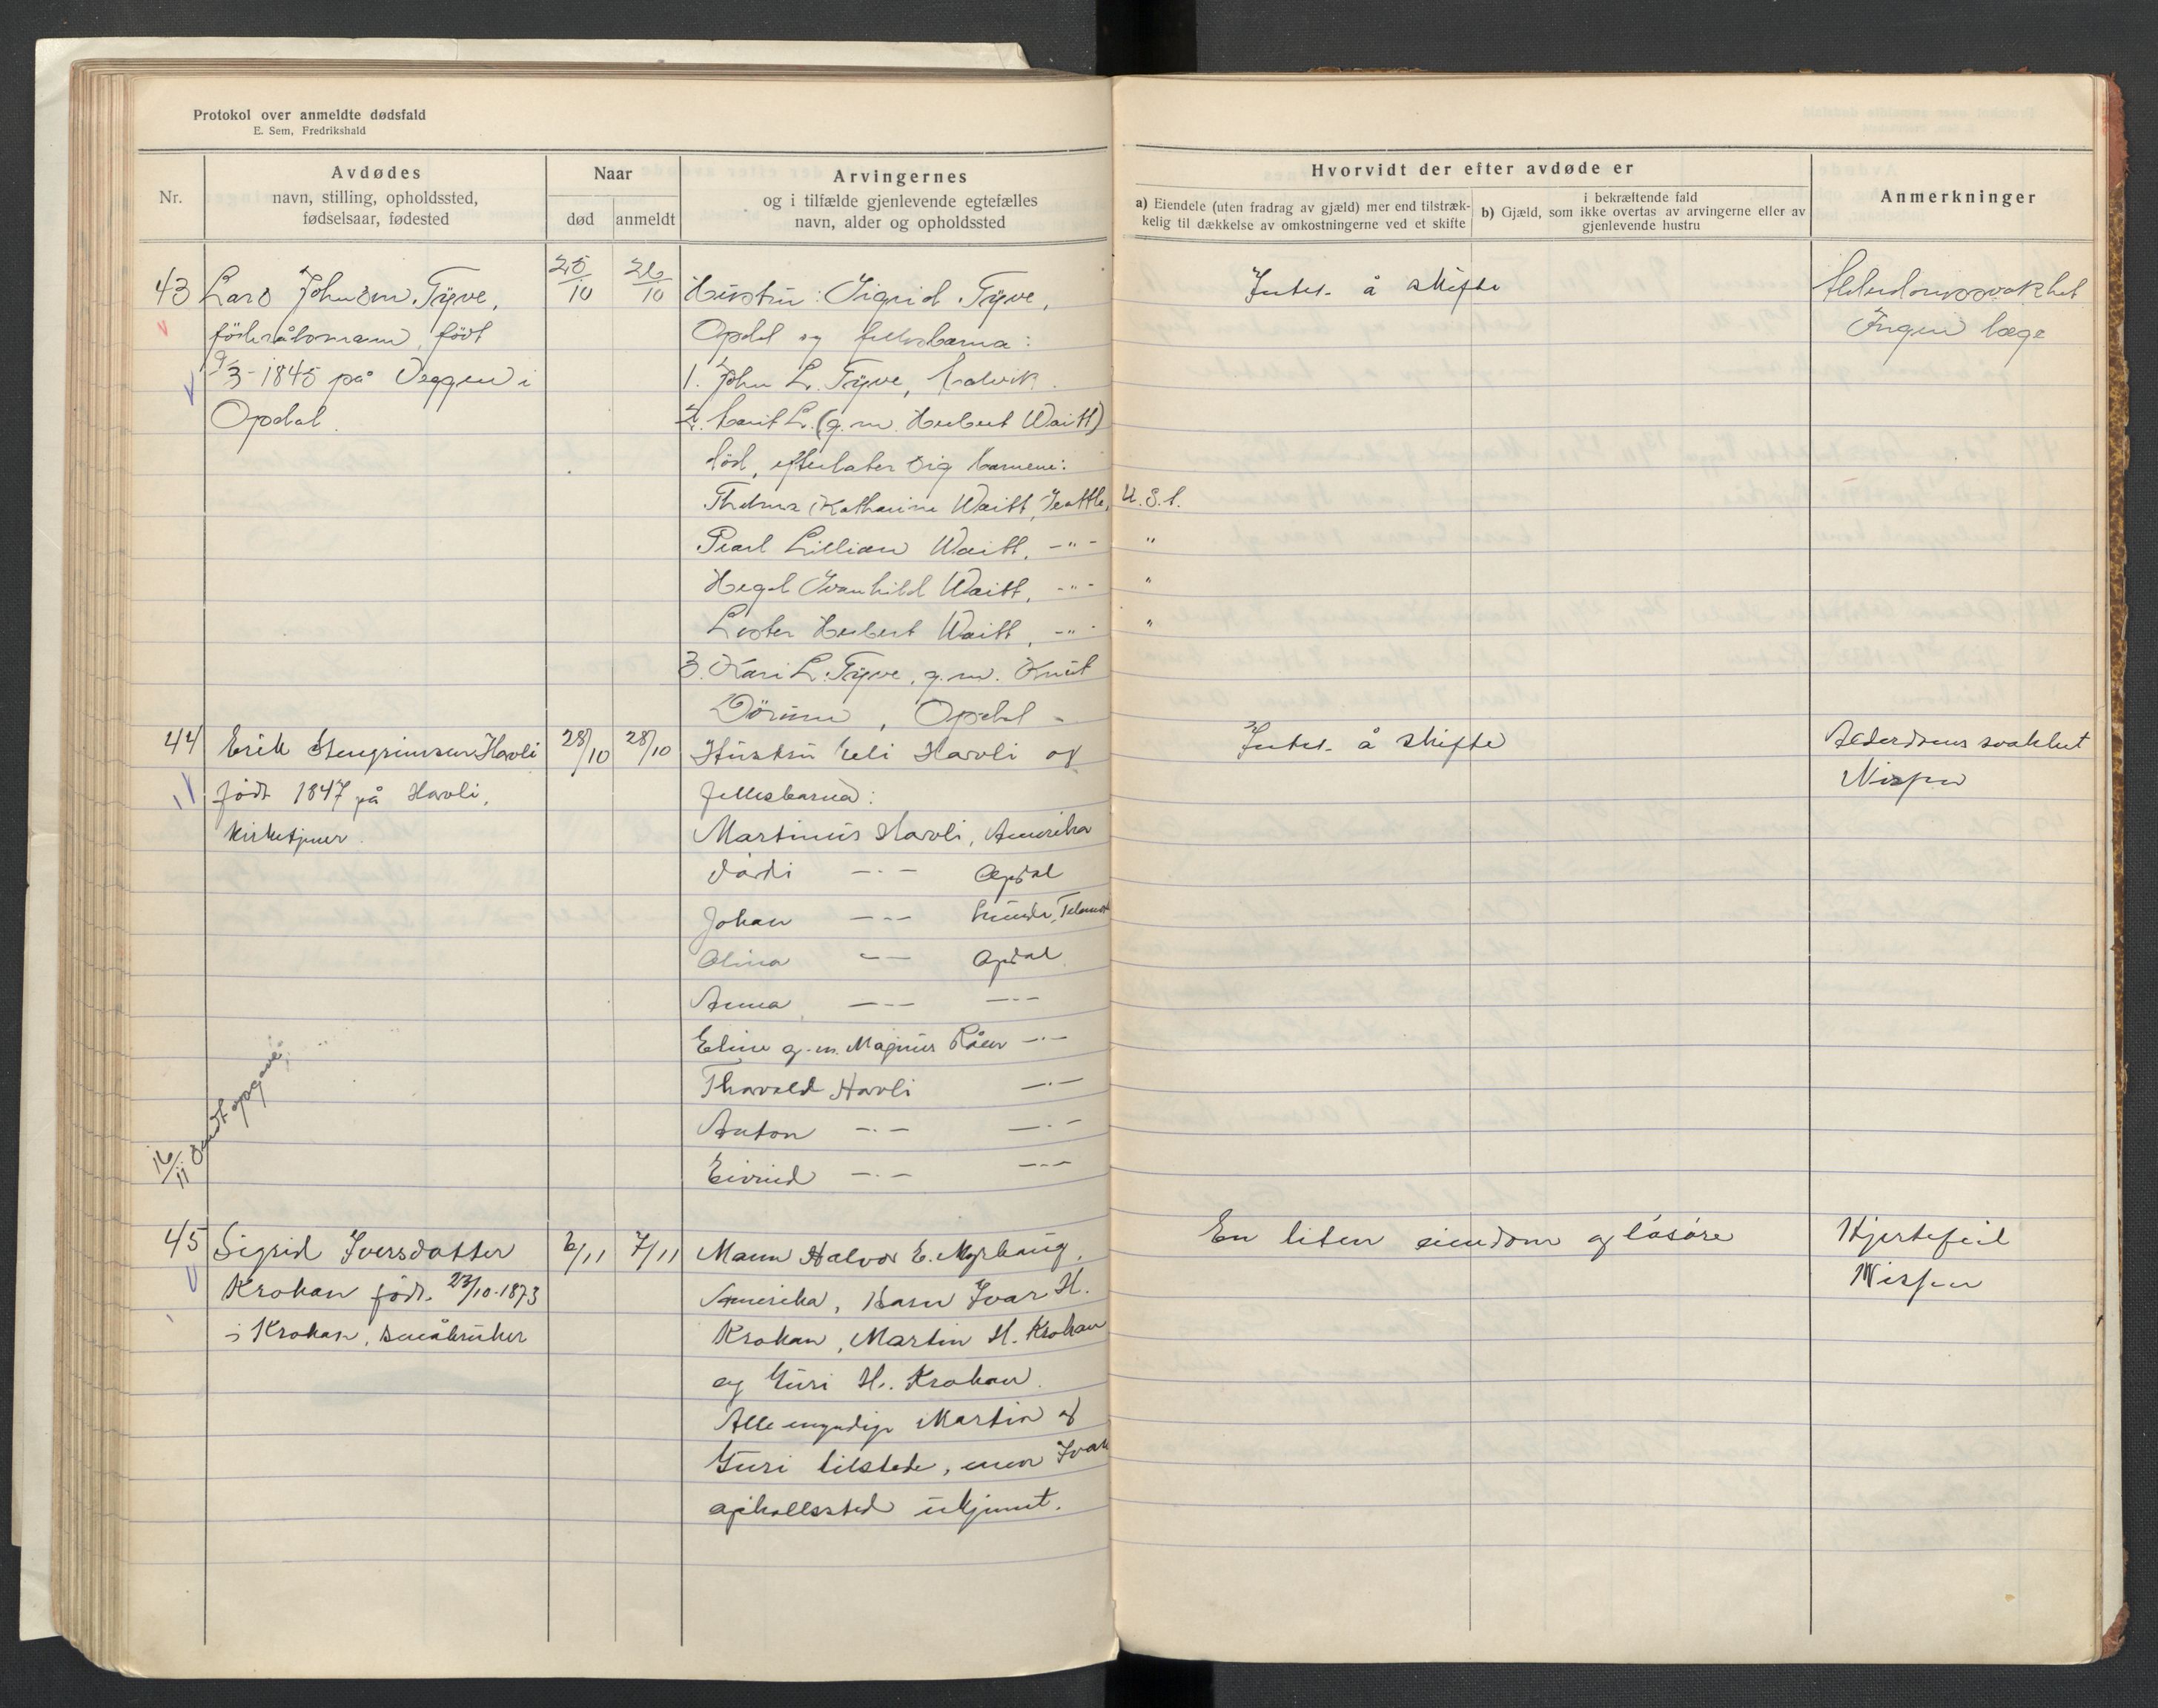 Protokol over anmeldte dødsfald
E. Sem, Fredrikshald
Nr.
Avdødes
navn, stilling, opholdssted,
fødselsaar, fødested
Naar
død
anmeldt
Arvingernes
og i tilfælde gjenlevende egtefælles
navn, alder og opholdssted
Hvorvidt der efter avdøde er
a) Eiendele (uten fradrag av gjæld) mer end tilstræk-
kelig til dækkelse av omkostningerne ved et skifte
i bekræftende fald
b) Gjæld, som ikke overtas av arvingerne eller av
gjenlevende hustru
Anmerkninger
43 Lars Johnsen Tyve,
föderådsmann, född
9/3-1845 på Veggen i
Opdal.
25/10
26/10
Hustru: Sigrid Tyve,
Opdal og fellesbarna:
1. John L. Tyve, Malvik.
2. Marit L. (g. m. Herbert Waitt)
död, efterlater sig barnene:
Thelma Katharine Waitt, Seattle, U.S.A.
Pearl Lillian Waitt, -"- "
Hegel Svanhild Waitt, -"- "
Lester Herbert Waitt, -"- "
3. Kari L. Tyve, g.m. Knut
Dörum, Opdal -
Intet å skifte
Alderdomssvakhet
Ingen læge
44 Erik Stengrimsen Havli
født 1847 på Havli,
kirketjener.
28/10
28/10
Hustru Eli Havli og
fellesbarna:
Martinus Havli, Amerika
Vårdi -"- Opdal
Johan -"- Telemark
Olina -"- Opdal
Anna, -"- -"-
Eline g.m. Magnus Råen -"-
Thorvald Havli -"-
Anton -"- -"-
Eivind -"- -"-
Intet å skifte
Alderdomssvakhet
Nissen
16/11 Sendt opgave.
45 Sigrid Iversdatter
Krokan født. 23/10-1873
i Krokan, småbruker
6/11
7/11
Mann Halvor E. Myrhaug,
Amerika, Barn Ivar H.
Krokan, Martin H. Krokan
og Guri H. Krokan.
Alle myndige Martin og
Guri tilstede, men Ivar
opholdssted ukjennt.
En liten eiendom og løsøre
Hjertefeil
Nissen